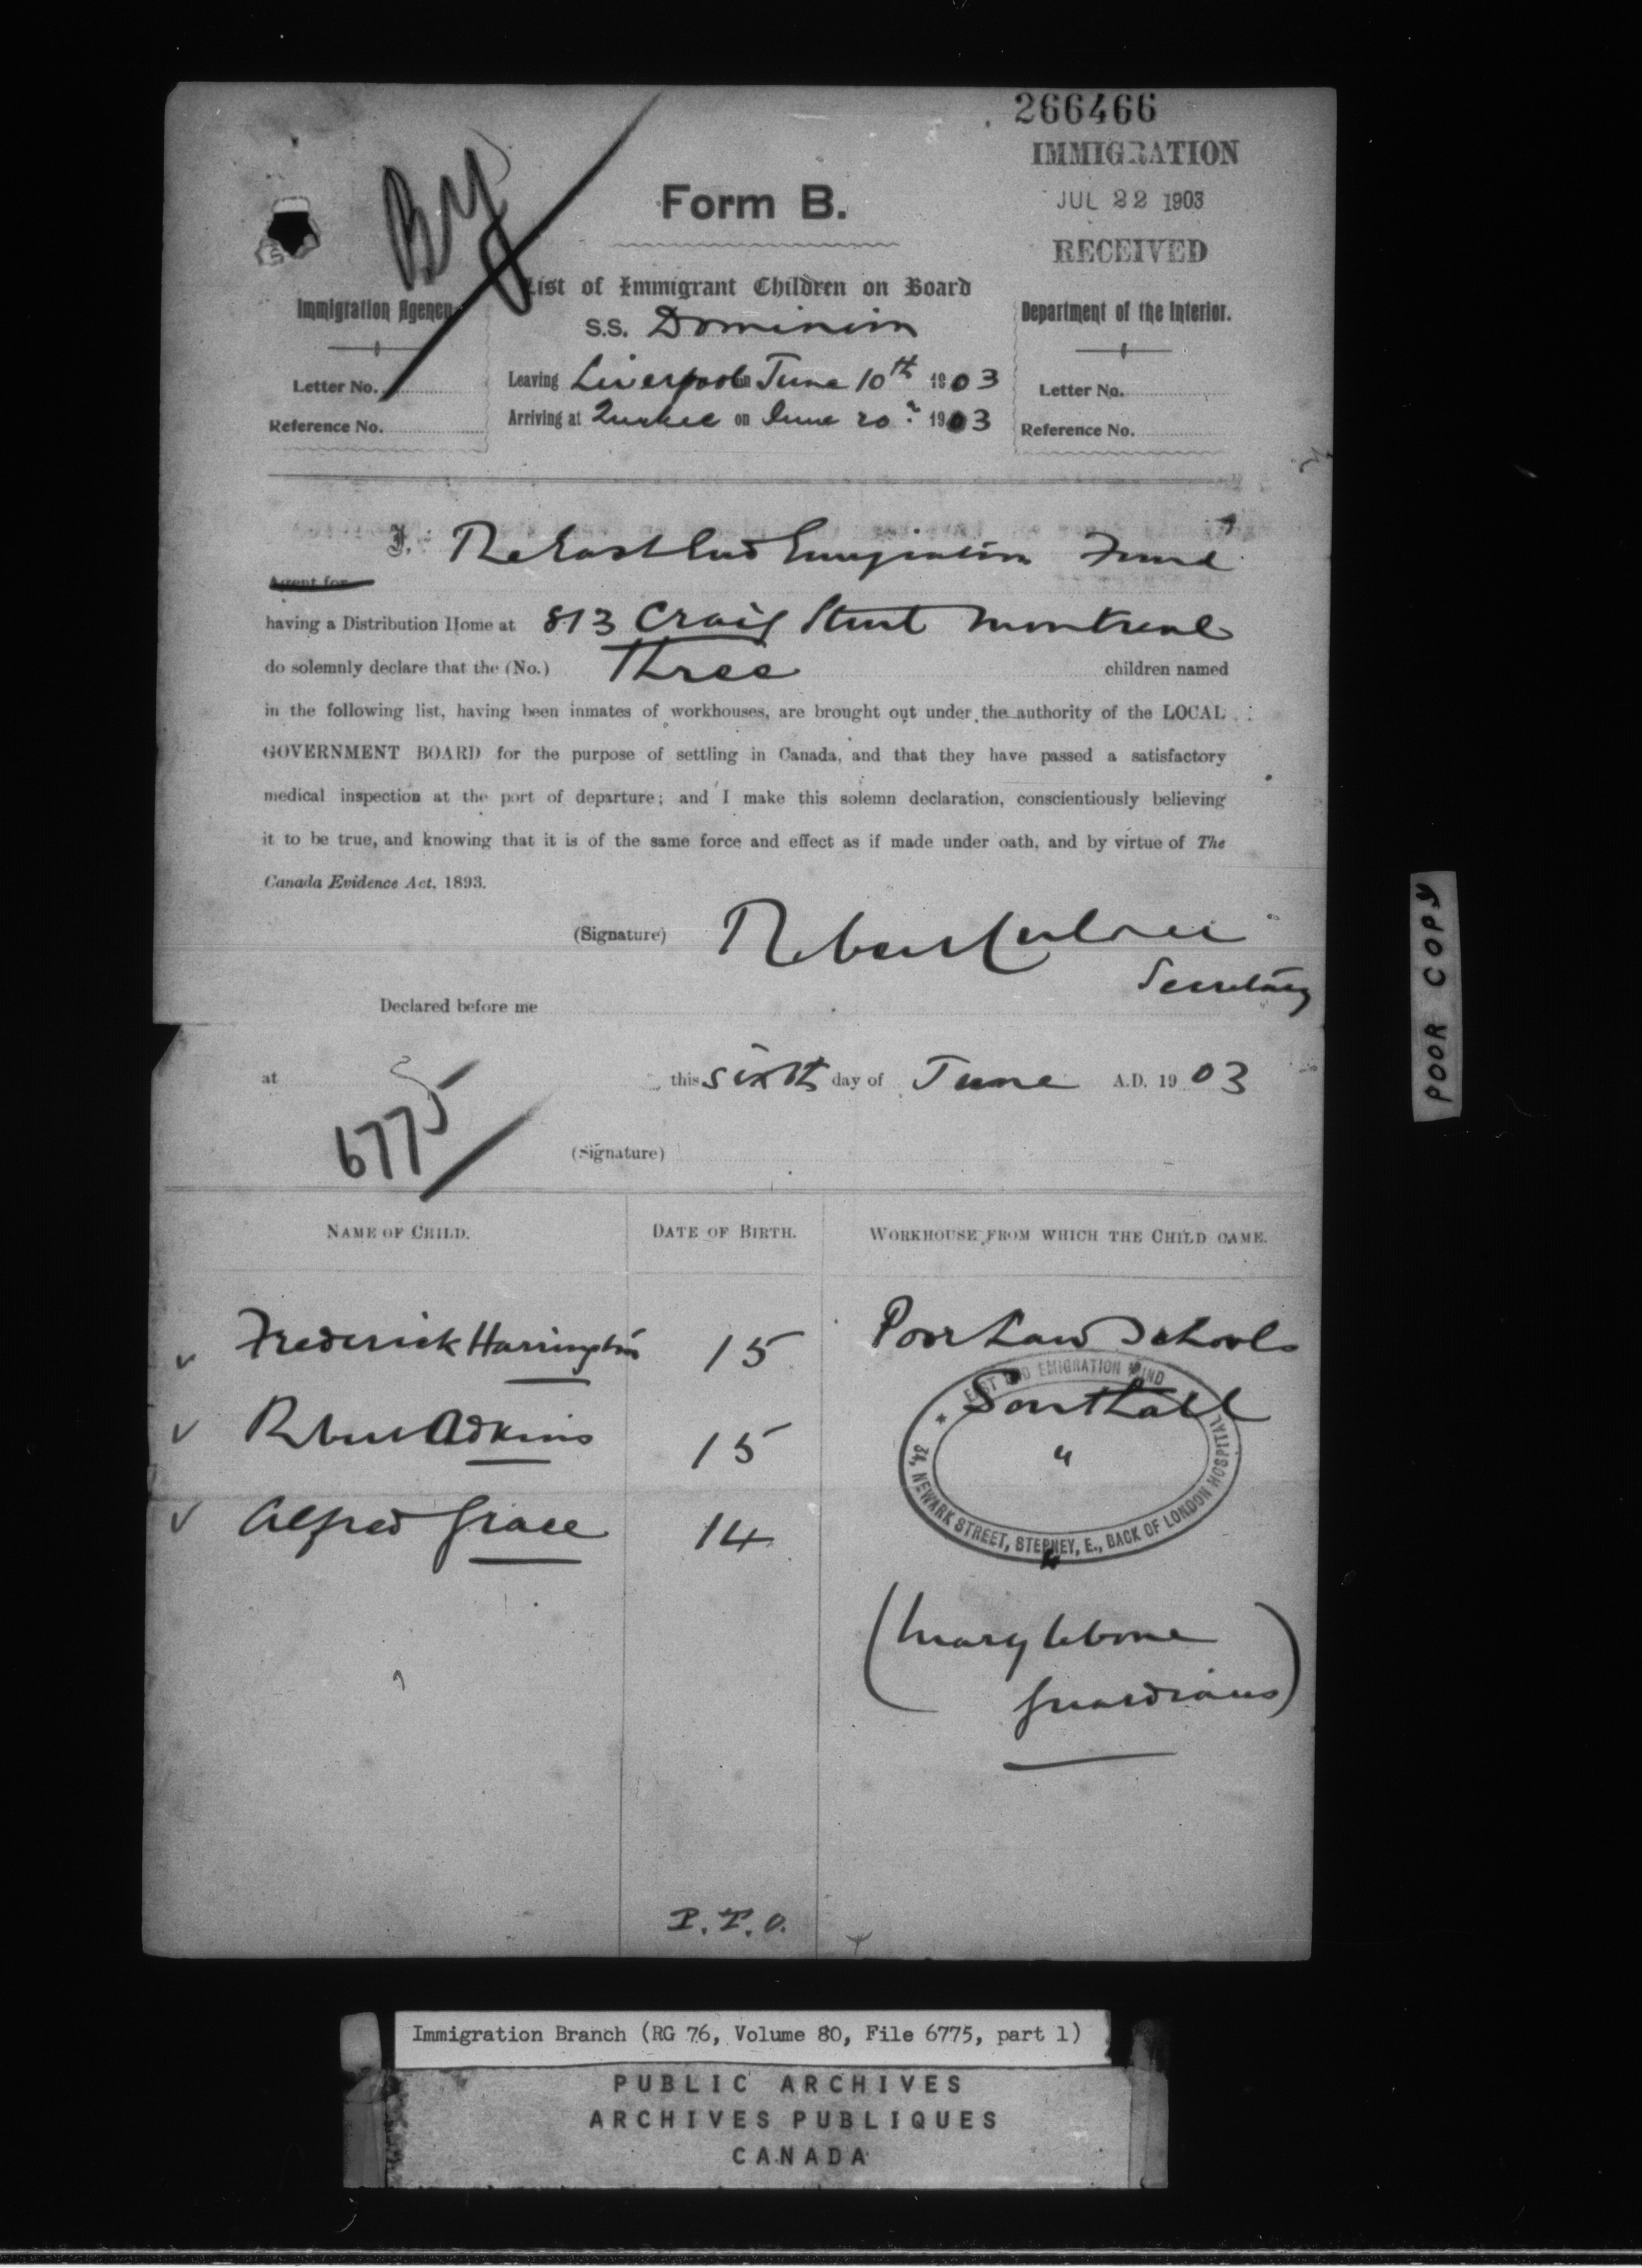 266466
IMMIGRATION
JUL 22 1903
RECEIVED
By
Form B.
List of Immigrant Children on Board
S.S. Dominion
Immigration Agency
Letter No.
Reference No.
Leaving Liverpool on June 10th 1903
Arriving at Quebec on June 20 1903
Department of the Interior.
Letter No.
Reference No.
I, The East End Emigration Fund
Agent for
having a Distribution Home at 813 Craig Street Montreal
do solemnly declare that the (No.) Three children named
in the following list, having been inmates of workhouses, are brought out under the authority of the LOCAL
GOVERNMENT BOARD for the purpose of settling in Canada, and that they have passed a satisfactory
medical inspection at the port of departure; and I make this solemn declaration, conscientiously believing
it to be true, and knowing that it is of the same force and effect as if made under oath, and by virtue of The
Canada Evidence Act, 1893.
(Signature) Robert
Secretary
Declared before me
at this sixth day of June A.D. 1903
6775
(Signature)
NAME OF CHILD. DATE OF BIRTH. WORKHOUSE FROM WHICH THE CHILD CAME.
Frederick Harrington 15 Poor Law Schools
Southall
Robert Adkins 15 "
Alfred Grace 14 "
EAST END EMIGRATION FUND
34, NEWARK STREET, STEPNEY, E., BACK OF LONDON HOSPITAL
(Marylebone
Guardians)
P.T.O.
POOR COPY
Immigration Branch (RG 76, Volume 80, File 6775, part 1)
PUBLIC ARCHIVES
ARCHIVES PUBLIQUES
CANADA